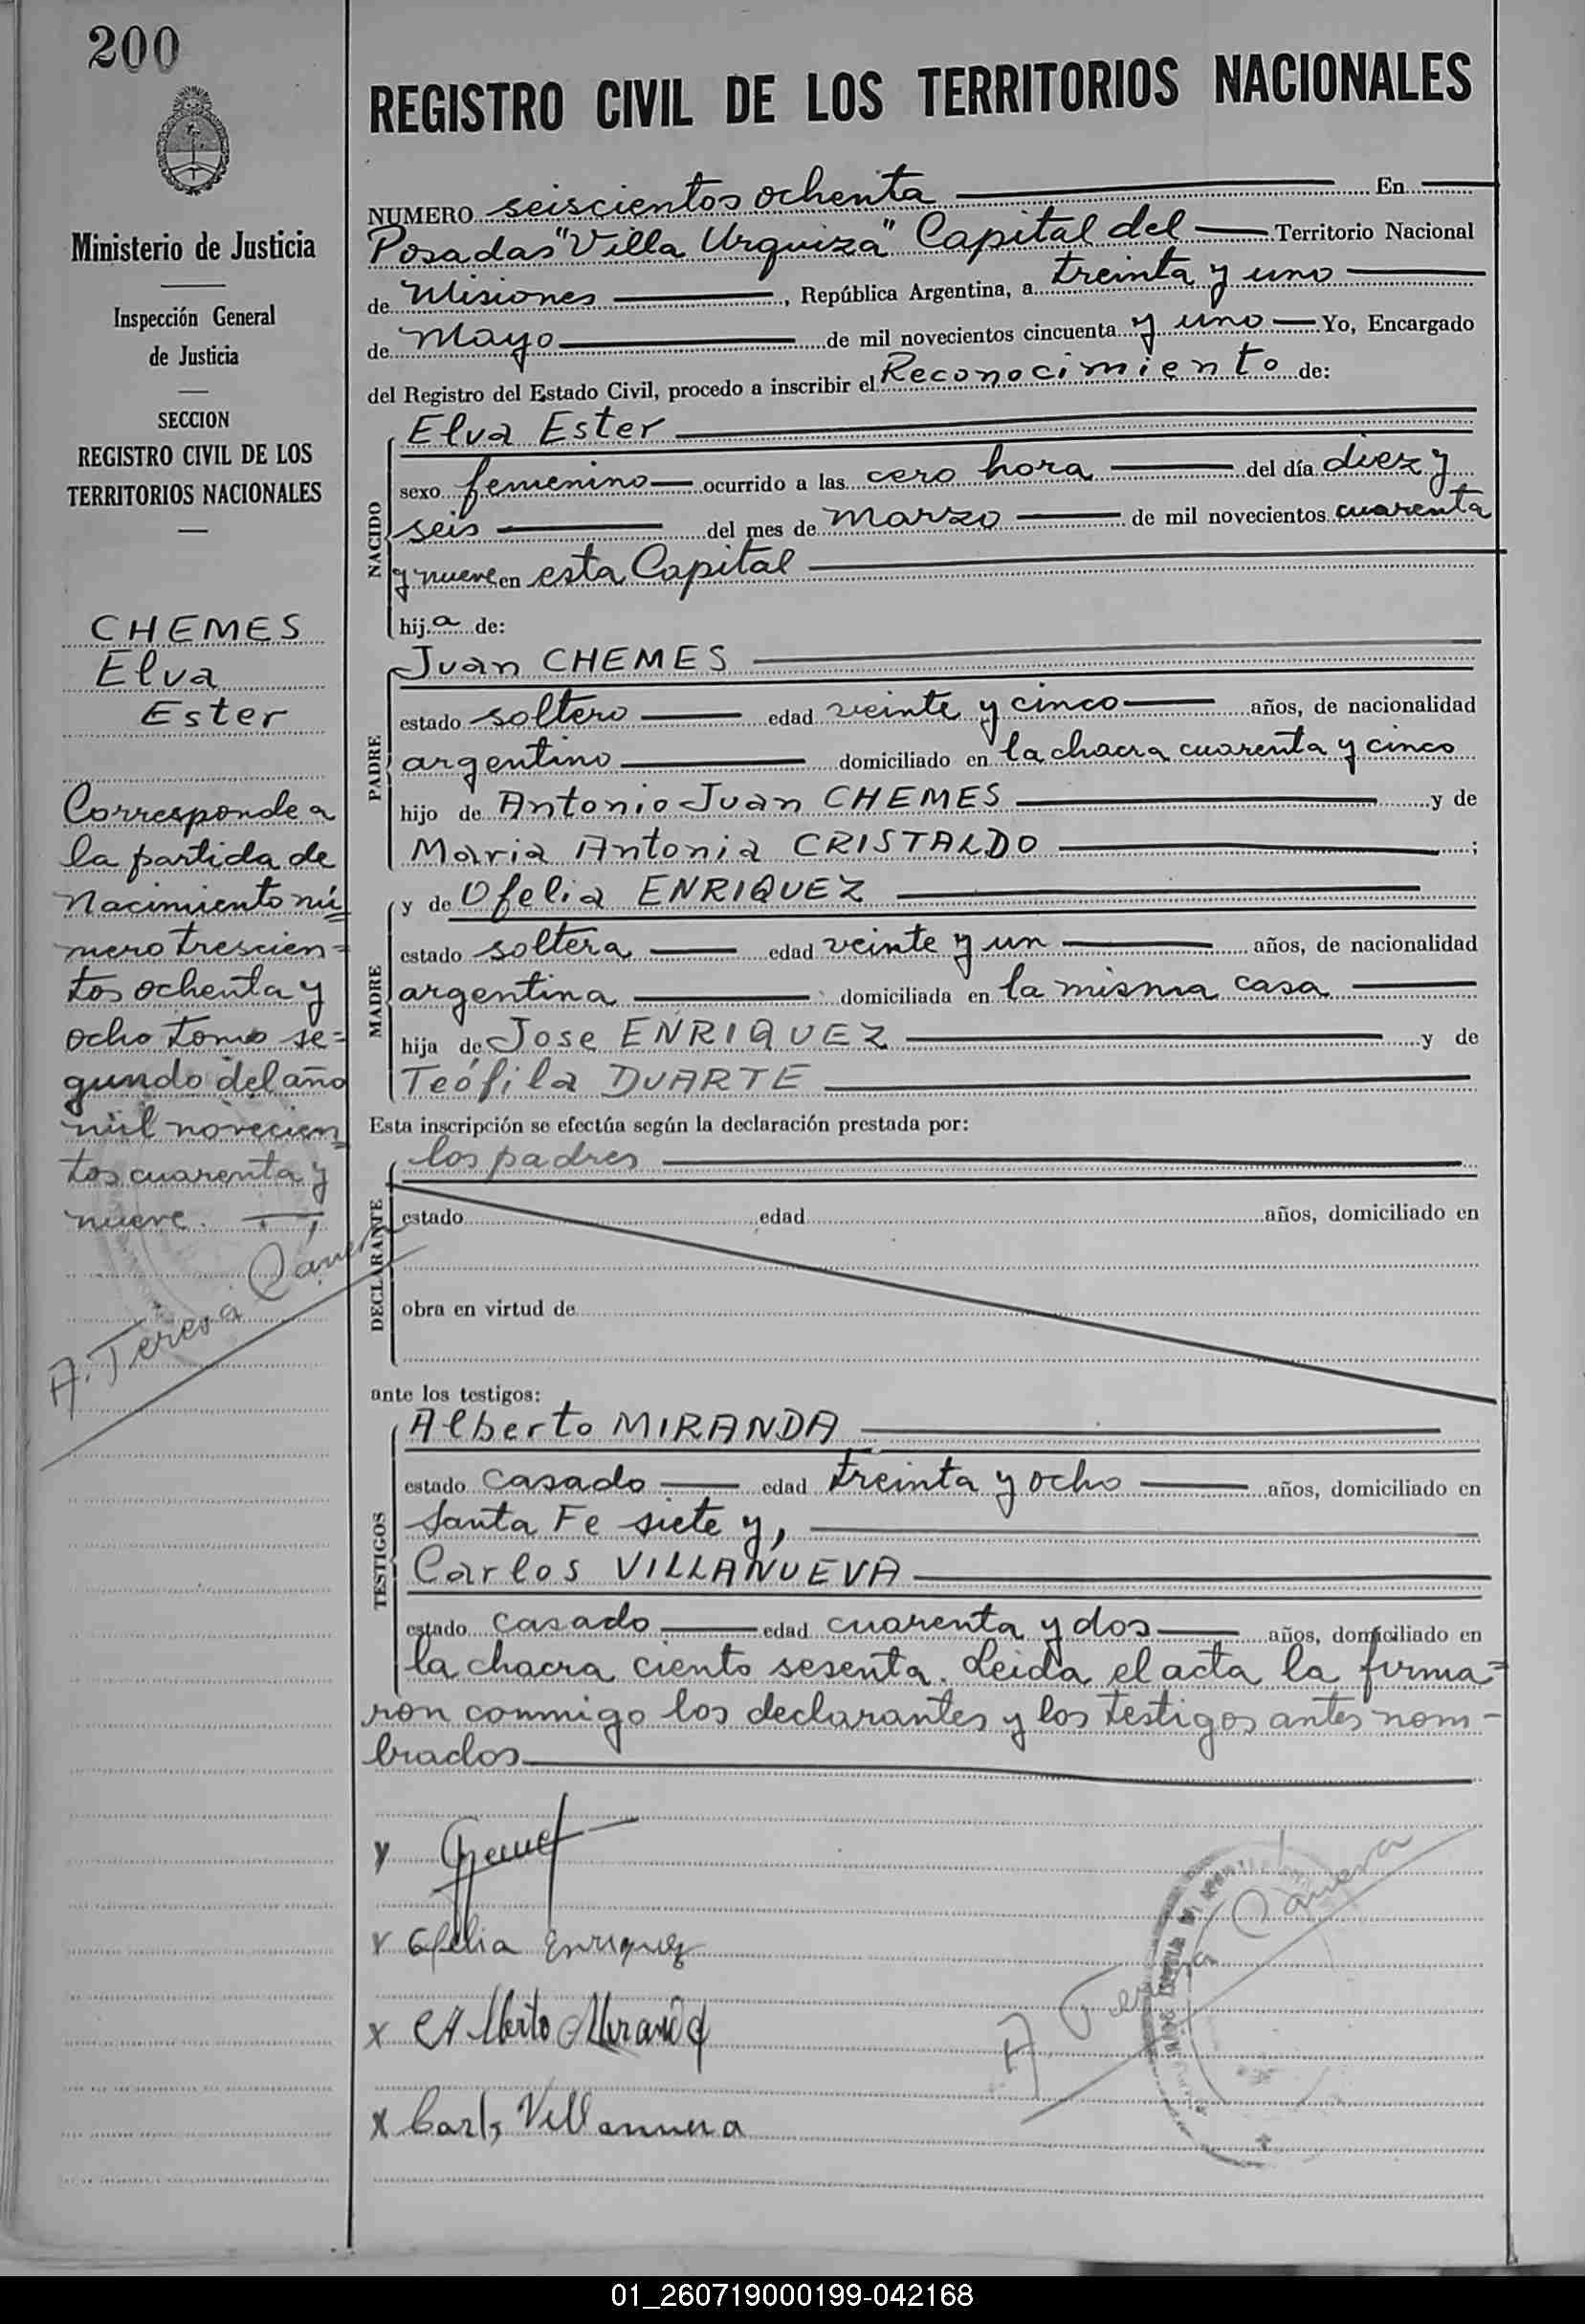 200
REGISTRO CIVIL DE LOS TERRITORIOS NACIONALES
Ministerio de Justicia
Inspección General
de Justicia
SECCION
REGISTRO CIVIL DE LOS
TERRITORIOS NACIONALES
CHEMES
Elva
Ester
Corresponde a
la partida de
Nacimiento nú=
mero trescien=
tos ochenta y
ocho tomo se=
gundo del año
mil novecien=
tos cuarenta y
nueve.
A. Teresa
NUMERO seiscientos ochenta En
Posadas "Villa Urquiza" Capital del Territorio Nacional
de Misiones, República Argentina, a treinta y uno
de Mayo de mil novecientos cincuenta y uno Yo, Encargado
del Registro del Estado Civil, procedo a inscribir el Reconocimiento de:
NACIDO
Elva Ester
sexo femenino ocurrido a las cero hora del día diez y
seis del mes de marzo de mil novecientos cuarenta
y nueve en esta Capital
hija de:
PADRE
Juan CHEMES
estado soltero edad veinte y cinco años, de nacionalidad
argentino domiciliado en la chacra cuarenta y cinco
hijo de Antonio Juan CHEMES y de
Maria Antonia CRISTALDO ;
MADRE
y de Ofelia ENRIQUEZ
estado soltera edad veinte y un años, de nacionalidad
argentina domiciliada en la misma casa
hija de Jose ENRIQUEZ y de
Teófila DUARTE
Esta inscripción se efectúa según la declaración prestada por:
DECLARANTE
los padres
estado edad años, domiciliado en
obra en virtud de
ante los testigos:
TESTIGOS
Alberto MIRANDA
estado casado edad treinta y ocho años, domiciliado en
Santa Fe siete y,
Carlos VILLANUEVA
estado casado edad cuarenta y dos años, domiciliado en
la chacra ciento sesenta. Leida el acta la firma=
ron conmigo los declarantes y los testigos antes nom-
brados
x Ofelia Enriquez
x Alberto Miranda
x Carlos Villanueva
01_260719000199-042168